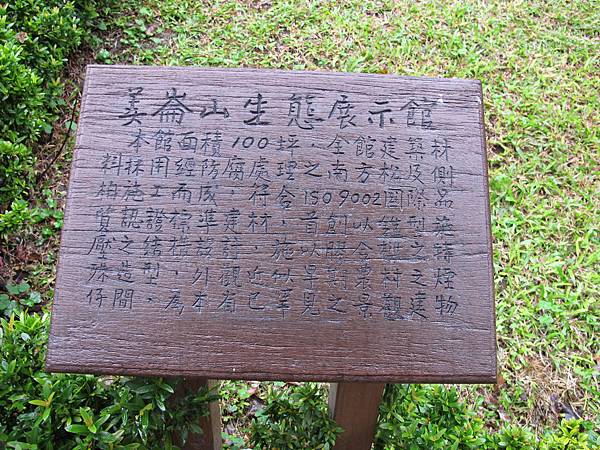 美崙山生態展示館
本館面積100坪，全館建築材
料採用經防腐處理之南方松及側
柏施工而成，符合ISO9002國際品
質認證標準建材，首創以鋼型施
壓之結構設計，施以膠合雜之轉
造型，外觀近似早期農村之煙
仔間，為本省已罕見之景觀建物